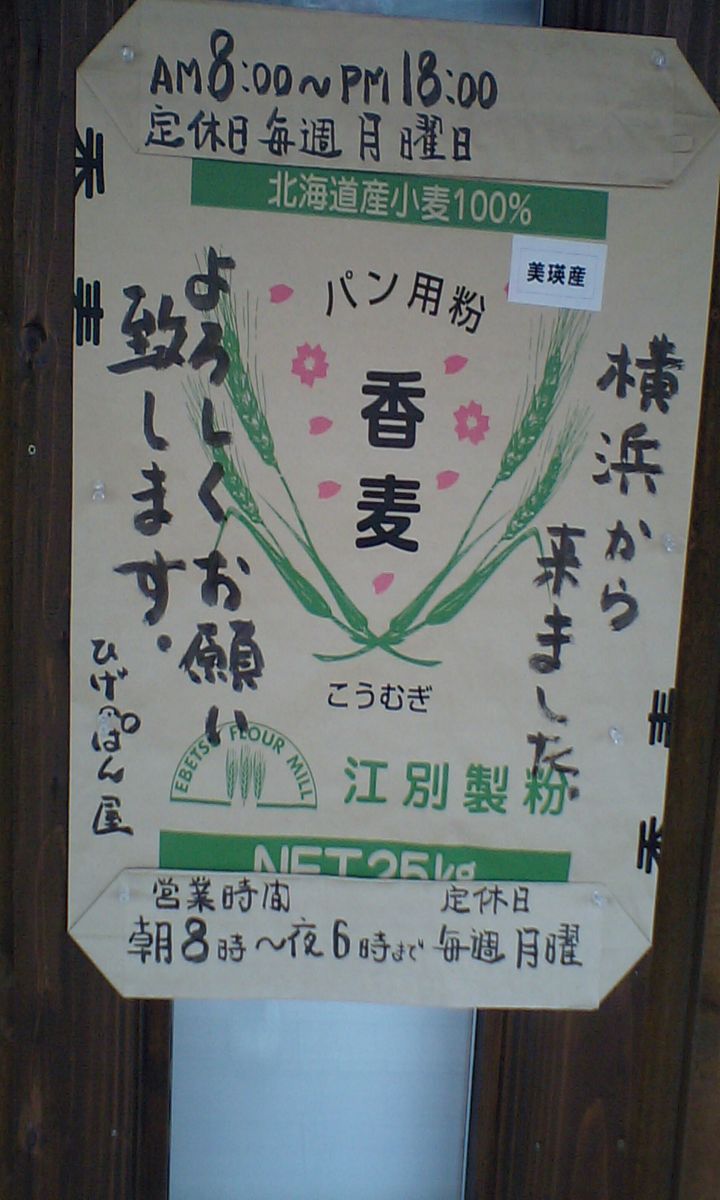 AM8:00〜PM18:00
定休日毎週月曜日
北海道産小麦100%
美瑛産
パン用粉
香麦
こうむぎ
横浜から
来ました。
よろしくお願い
致します。
ひげのぱん屋
EBETSU FLOUR MILL
江別製粉
NET25kg
営業時間
定休日
朝8時〜夜6時まで
毎週月曜